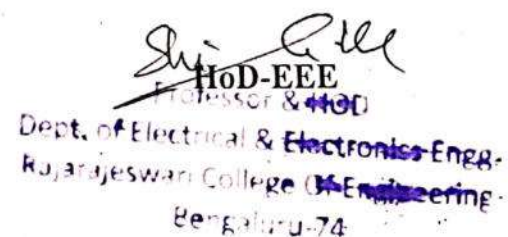 HoD-EEE
Professor & HOD
Dept. of Electrical & Electronics Engg.
Rajarajeswari College Of Engineering
Bengaluru-74